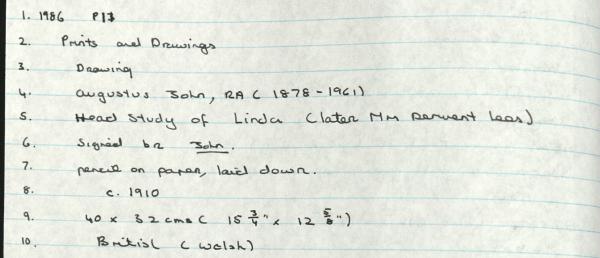 1. 1986 P13
2. Prints and Drawings
3. Drawing
4. Augustus John, RA (1878-1961)
5. Head Study of Linda (later Mrs Dervent Lees)
6. Signed br John.
7. pencil on paper, laid down.
8. c. 1910
9. 40 x 32 cms (15 3/4" x 12 5/8")
10. British (Welsh)